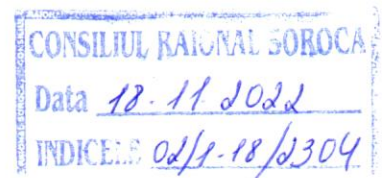 CONSILIUL RAIONAL SOROCA
Data 18-11 2022
INDICELE 02/1-18/2304